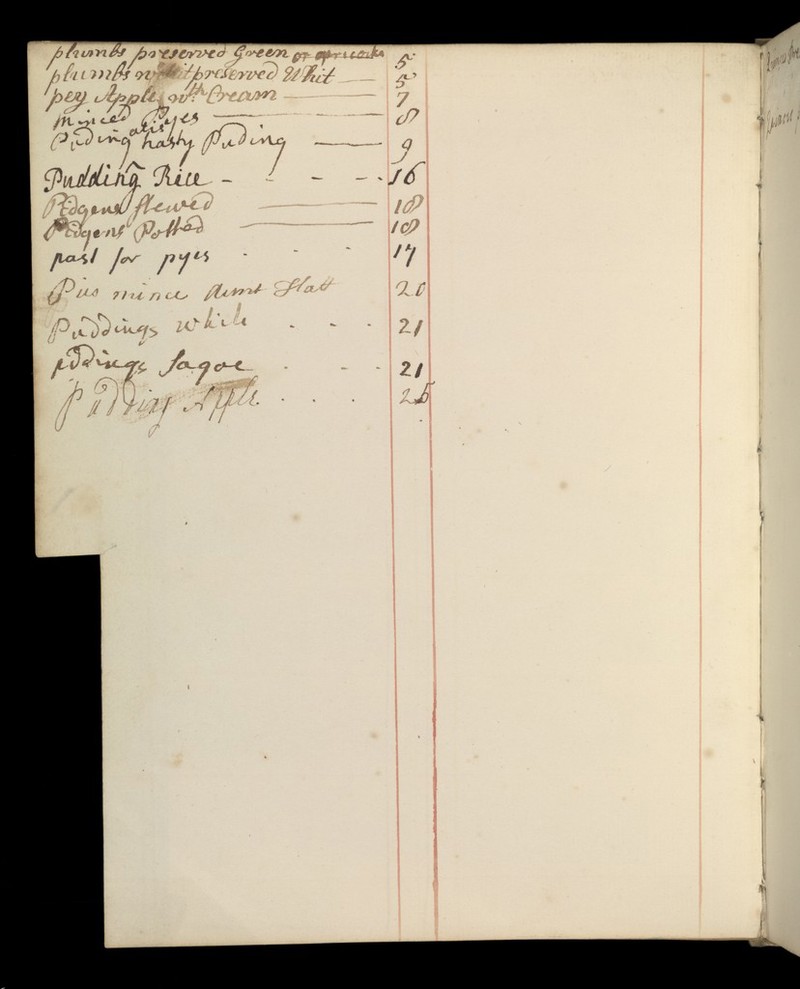 plumbs preserved Green or apricocks 5
plumbs preserved Whit 5
pey Apple wth Cream 7
minced Pyes 8
Puding hasty Puding 9
Pudding Rice 16
Pidgens stewed 18
Pidgens Potted 18
past for pyes 17
Pies mince Aunt 20
Puddings white 21
pddings Sagoe 21
Pudding Apple 25